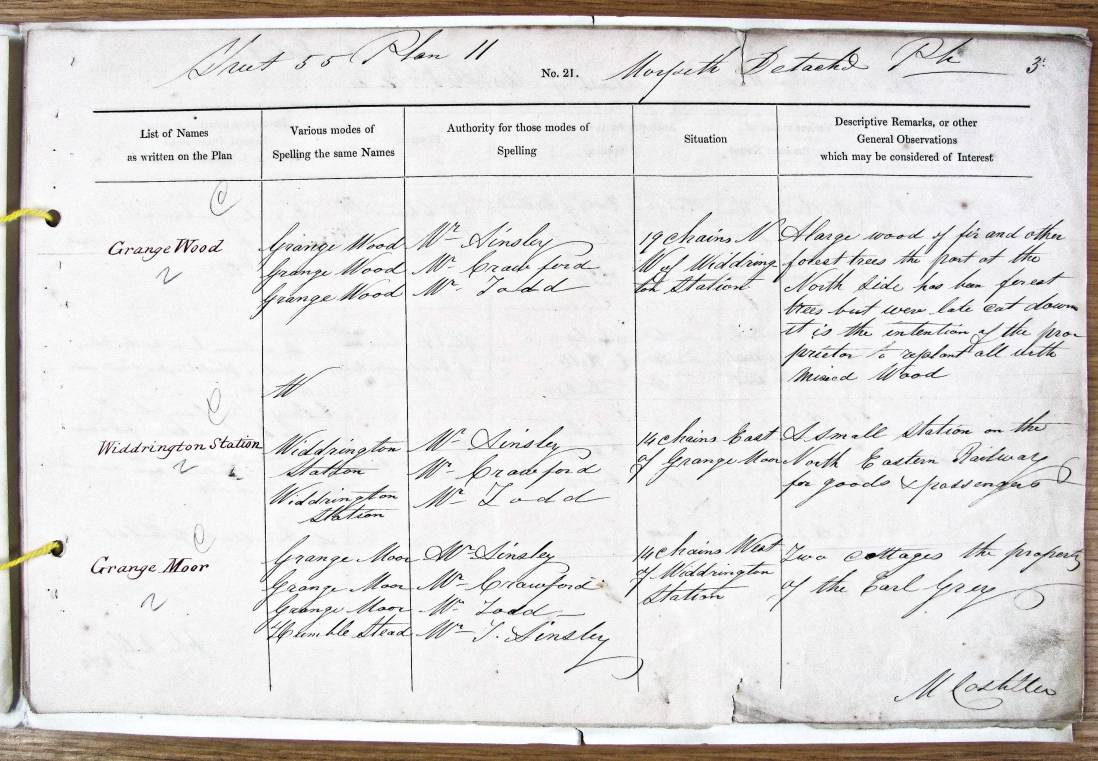 Sheet 55 Plan 11 No. 21. Morpeth Detachd Ph 3
List of Names
as written on the Plan
Various modes of
Spelling the same Names
Authority for those modes of
Spelling
Situation
Descriptive Remarks, or other
General Observations
which may be considered of Interest
Grange Wood
Grange Wood
Grange Wood
Grange Wood
Mr Linsley
Mr Crawford
Mr Todd
19 chains N
W of Widdring
ton Station
A large wood of fir and other
forest trees the part at the
North side has been forest
trees but were late cut down
it is the intention of the pro
prietor to replant all with
mixed Wood
Widdrington Station
Widdrington
Station
Widdrington
Station
Mr Linsley
Mr Crawford
Mr Todd
14 chains East
of Grange Moor
A small station on the
North Eastern Railway
for goods & passengers
Grange Moor
Grange Moor
Grange Moor
Grange Moor
Humble Stead
Mr Linsley
Mr Crawford
Mr Todd
Mr T. Linsley
14 chains West
of Widdrington
Station
Two cottages the property
of the Earl Grey